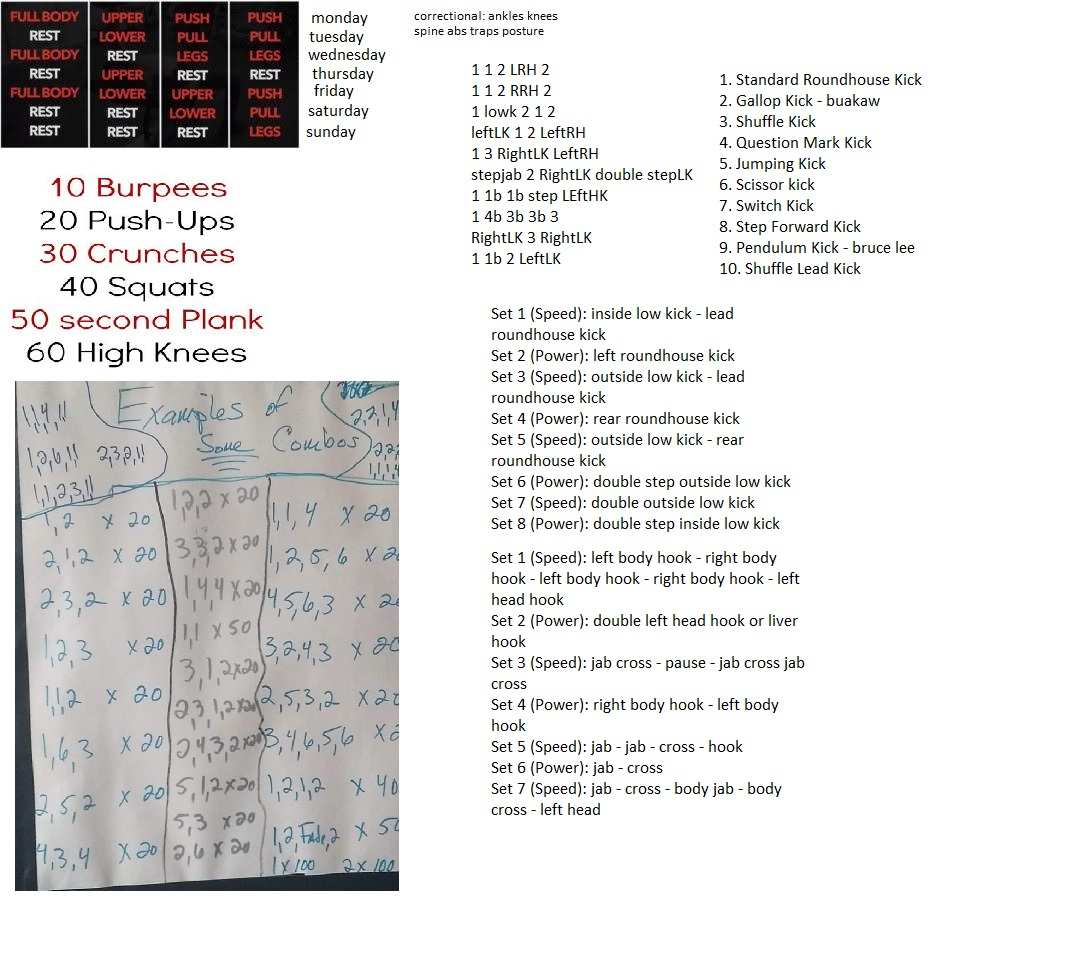 FULL BODY UPPER PUSH PUSH monday
REST LOWER PULL PULL tuesday
FULL BODY REST LEGS LEGS wednesday
REST UPPER REST REST thursday
FULL BODY LOWER UPPER PUSH friday
REST REST LOWER PULL saturday
REST REST REST LEGS sunday
correctional: ankles knees
spine abs traps posture
10 Burpees
20 Push-Ups
30 Crunches
40 Squats
50 second Plank
60 High Knees
1 1 2 LRH 2
1 1 2 RRH 2
1 lowk 2 1 2
leftLK 1 2 LeftRH
1 3 RightLK LeftRH
stepjab 2 RightLK double stepLK
1 1b 1b step LEftHK
1 4b 3b 3b 3
RightLK 3 RightLK
1 1b 2 LeftLK
1. Standard Roundhouse Kick
2. Gallop Kick - buakaw
3. Shuffle Kick
4. Question Mark Kick
5. Jumping Kick
6. Scissor kick
7. Switch Kick
8. Step Forward Kick
9. Pendulum Kick - bruce lee
10. Shuffle Lead Kick
Set 1 (Speed): inside low kick - lead
roundhouse kick
Set 2 (Power): left roundhouse kick
Set 3 (Speed): outside low kick - lead
roundhouse kick
Set 4 (Power): rear roundhouse kick
Set 5 (Speed): outside low kick - rear
roundhouse kick
Set 6 (Power): double step outside low kick
Set 7 (Speed): double outside low kick
Set 8 (Power): double step inside low kick
Set 1 (Speed): left body hook - right body
hook - left body hook - right body hook - left
head hook
Set 2 (Power): double left head hook or liver
hook
Set 3 (Speed): jab cross - pause - jab cross jab
cross
Set 4 (Power): right body hook - left body
hook
Set 5 (Speed): jab - jab - cross - hook
Set 6 (Power): jab - cross
Set 7 (Speed): jab - cross - body jab - body
cross - left head
Examples of
Some Combos
1,1,4,1,1
1,2,6,1,1 2,3,2,1,1
1,1,2,3,1,1
2,2,1,4
1,2 x 20
2,1,2 x 20
2,3,2 x 20
1,2,3 x 20
1,1,2 x 20
1,6,3 x 20
2,5,2 x 20
4,3,4 x 20
1,2,2 x 20
3,3,2 x 20
1,4,4 x 20
1,1 x 50
3,1,2 x 20
2,3,1,2 x 20
2,4,3,2 x 20
5,1,2 x 20
5,3 x 20
2,6 x 20
1,1,4 x 20
1,2,5,6 x 2
4,5,6,3 x 2
3,2,4,3 x 20
2,5,3,2 x 20
3,4,6,5,6 x 2
1,2,1,2 x 40
1,2,Fade,2 x 50
1 x 100 2 x 100